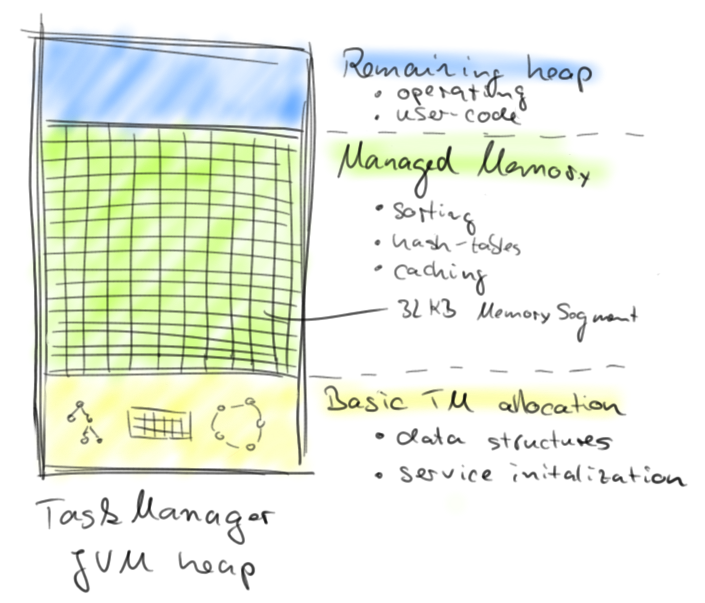 Remaining heap
• operating
• user-code
Managed Memory
• sorting
• hash-tables
• caching
32 KB Memory Segment
Basic TM allocation
• data structures
• service initalization
TaskManager
JVM heap